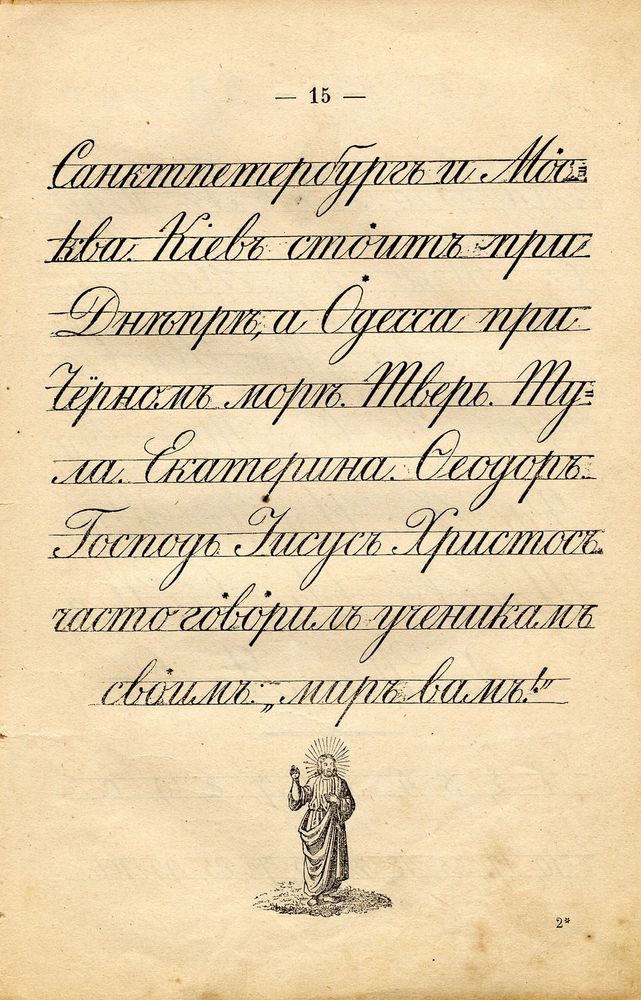 — 15 —
Санктпетербургъ и Мос=
ква. Кіевъ стоитъ при
Днѣпрѣ, а Одесса при
Чёрномъ морѣ. Тверь. Ту=
ла. Екатерина. Ѳеодоръ.
Господь Іисусъ Христосъ
часто говорилъ ученикамъ
своимъ: „миръ вамъ!"
2*